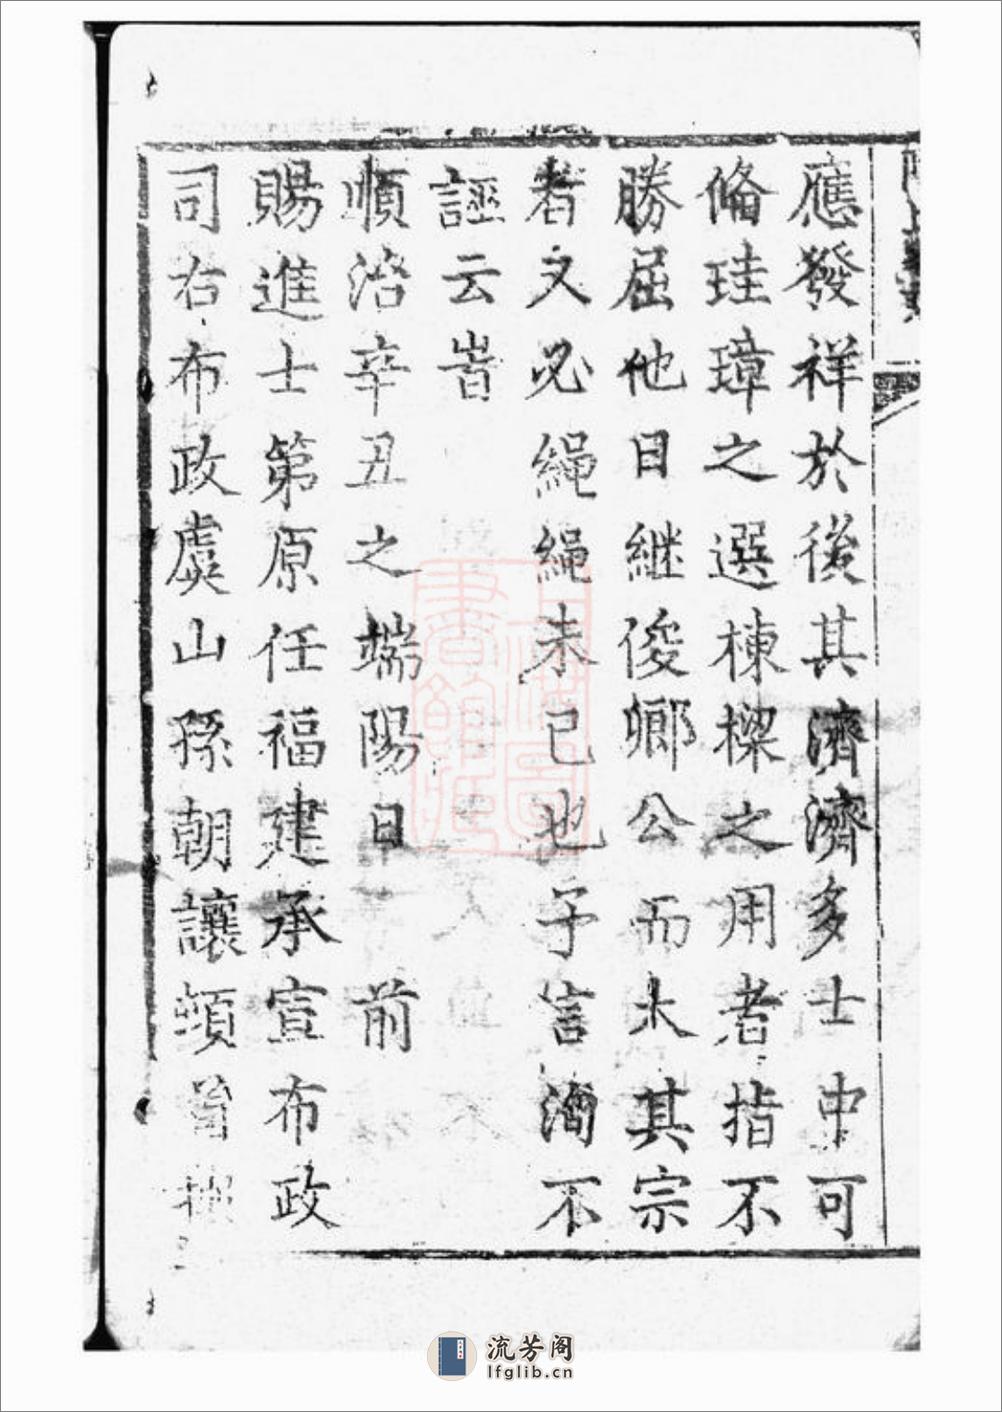 應發祥於後其濟濟多士中可
偹珪璋之選棟樑之用者指不
勝屈他日継俊鄉公而大其宗
者又必繩繩未已也予言洵不
誣云旹
順治辛丑之端陽日 前
賜進士第原任福建承宣布政
司右布政虞山孫朝讓頓首撰
上海圖書館藏
流芳阁
lfglib.cn